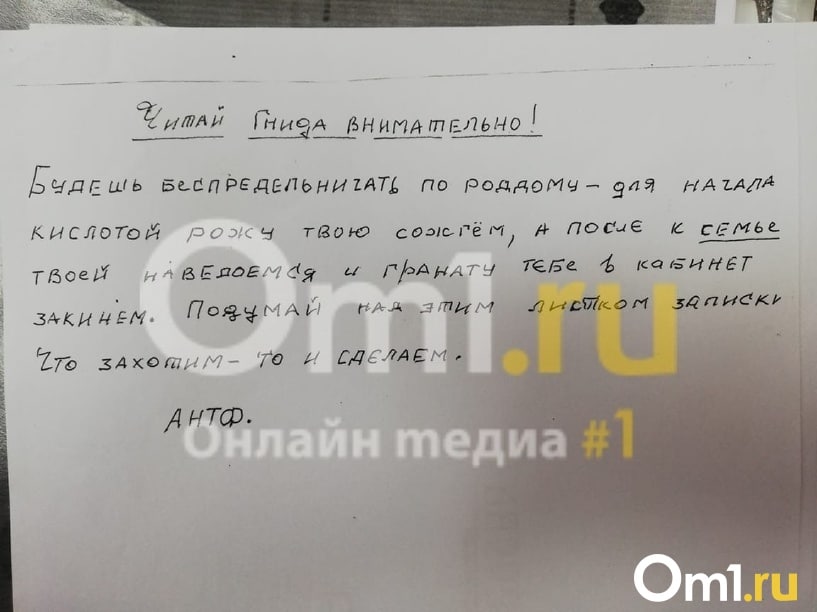 Читай Гнида внимательно!
Будешь беспредельничать по роддому – для начала
кислотой рожу твою сожгём, а после к семье
твоей наведоемся и гранату тебе в кабинет
закинем. Подумай над этим листком записки
Что захотим – то и сделаем.
АНТФ.
Om1.ru
Онлайн медиа #1
Om1.ru